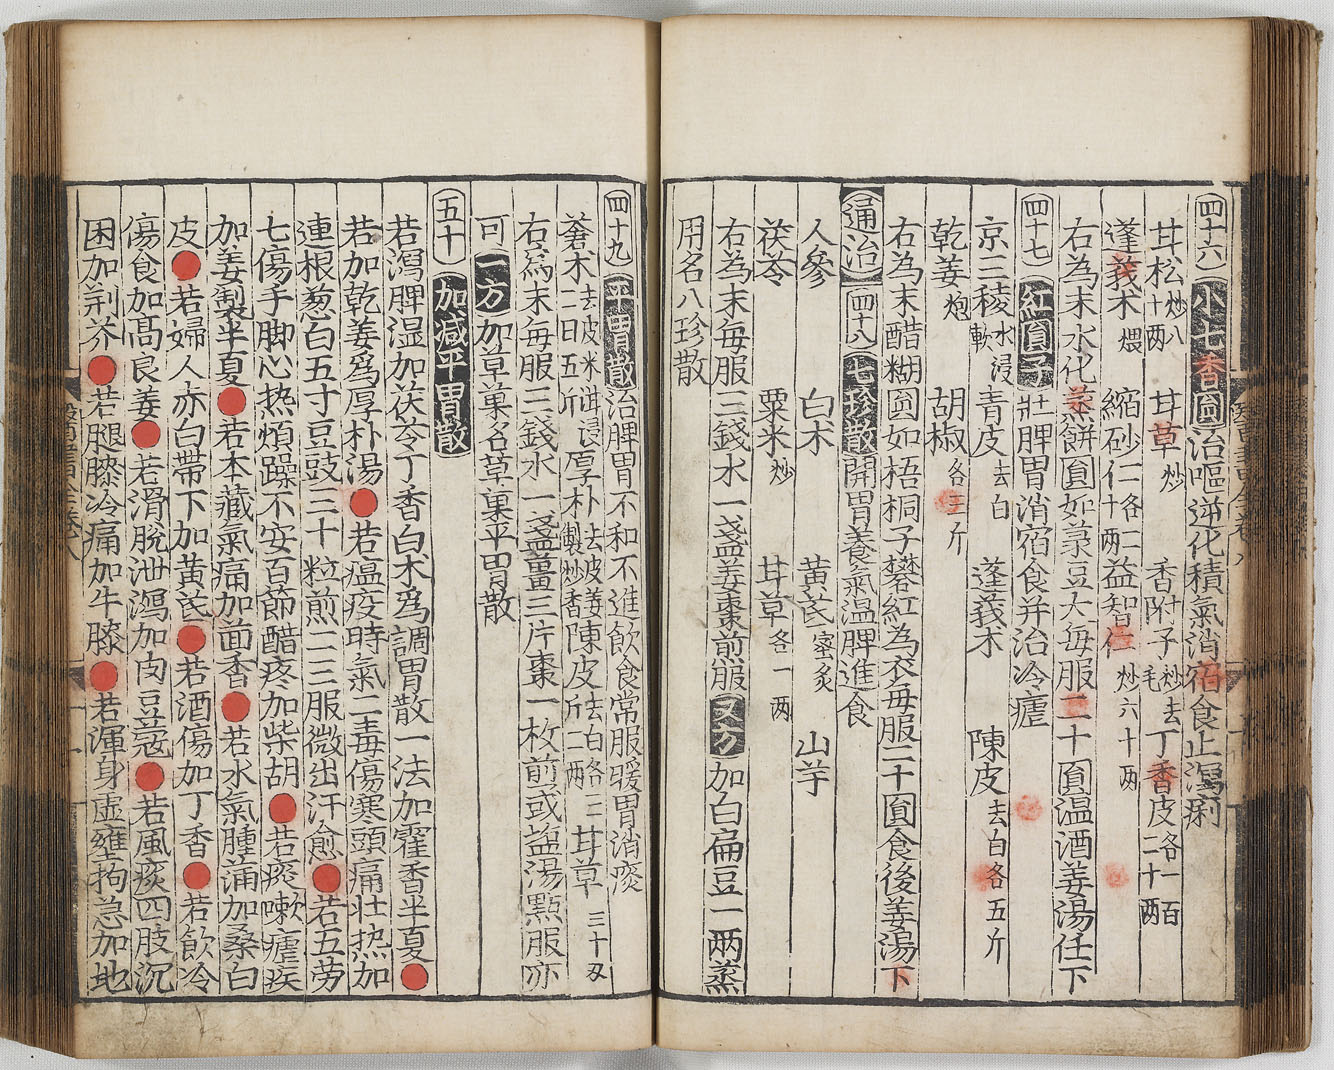 四十六 小七香圓治嘔逆化積氣消宿食止瀉痢
甘松炒八十兩 甘草炒 香附子炒去毛 丁香皮各一百二十兩
蓬莪朮煨 縮砂仁各二十兩 益智仁炒六十兩
右為末水化蒸餅圓如菉豆大每服二十圓温酒姜湯任下
四十七 紅圓子壯脾胃消宿食并治冷瘧
京三稜水浸軟 青皮去白 蓬莪朮 陳皮去白各五斤
乾姜炮 胡椒各三斤
右為末醋糊圓如梧桐子礬紅為衣每服二十圓食後姜湯下
通治 四十八 七珍散開胃養氣温脾進食
人參 白朮 黃茋蜜炙 山芋
茯苓 粟米炒 甘草各一兩
右為末每服三錢水一盞姜棗煎服又方加白扁豆一兩蒸
用名八珍散
四十九 平胃散治脾胃不和不進飲食常服暖胃消痰
蒼朮去皮米泔浸二日五斤 厚朴去皮姜製炒香 陳皮去白各三斤二兩 甘草三十兩
右爲末每服三錢水一盞薑三片棗一枚煎或盐湯點服亦
可一方加草菓名草菓平胃散
五十 加减平胃散
若瀉脾湿加茯苓丁香白朮爲調胃散一法加藿香半夏
若加乾姜爲厚朴湯 若瘟疫時氣二毒傷寒頭痛壮热加
連根葱白五寸豆豉三十粒煎二三服微出汗愈 若五劳
七傷手脚心热煩躁不安百節醋疼加柴胡 若痰嗽瘧疾
加姜製半夏 若本藏氣痛加茴香 若水氣腫滿加桑白
皮 若婦人赤白帶下加黄茋 若酒傷加丁香 若飲冷
傷食加高良姜 若滑脫泄瀉加肉豆蔻 若風痰四肢沉
困加荆芥 若腿膝冷痛加牛膝 若渾身虛壅拘急加地